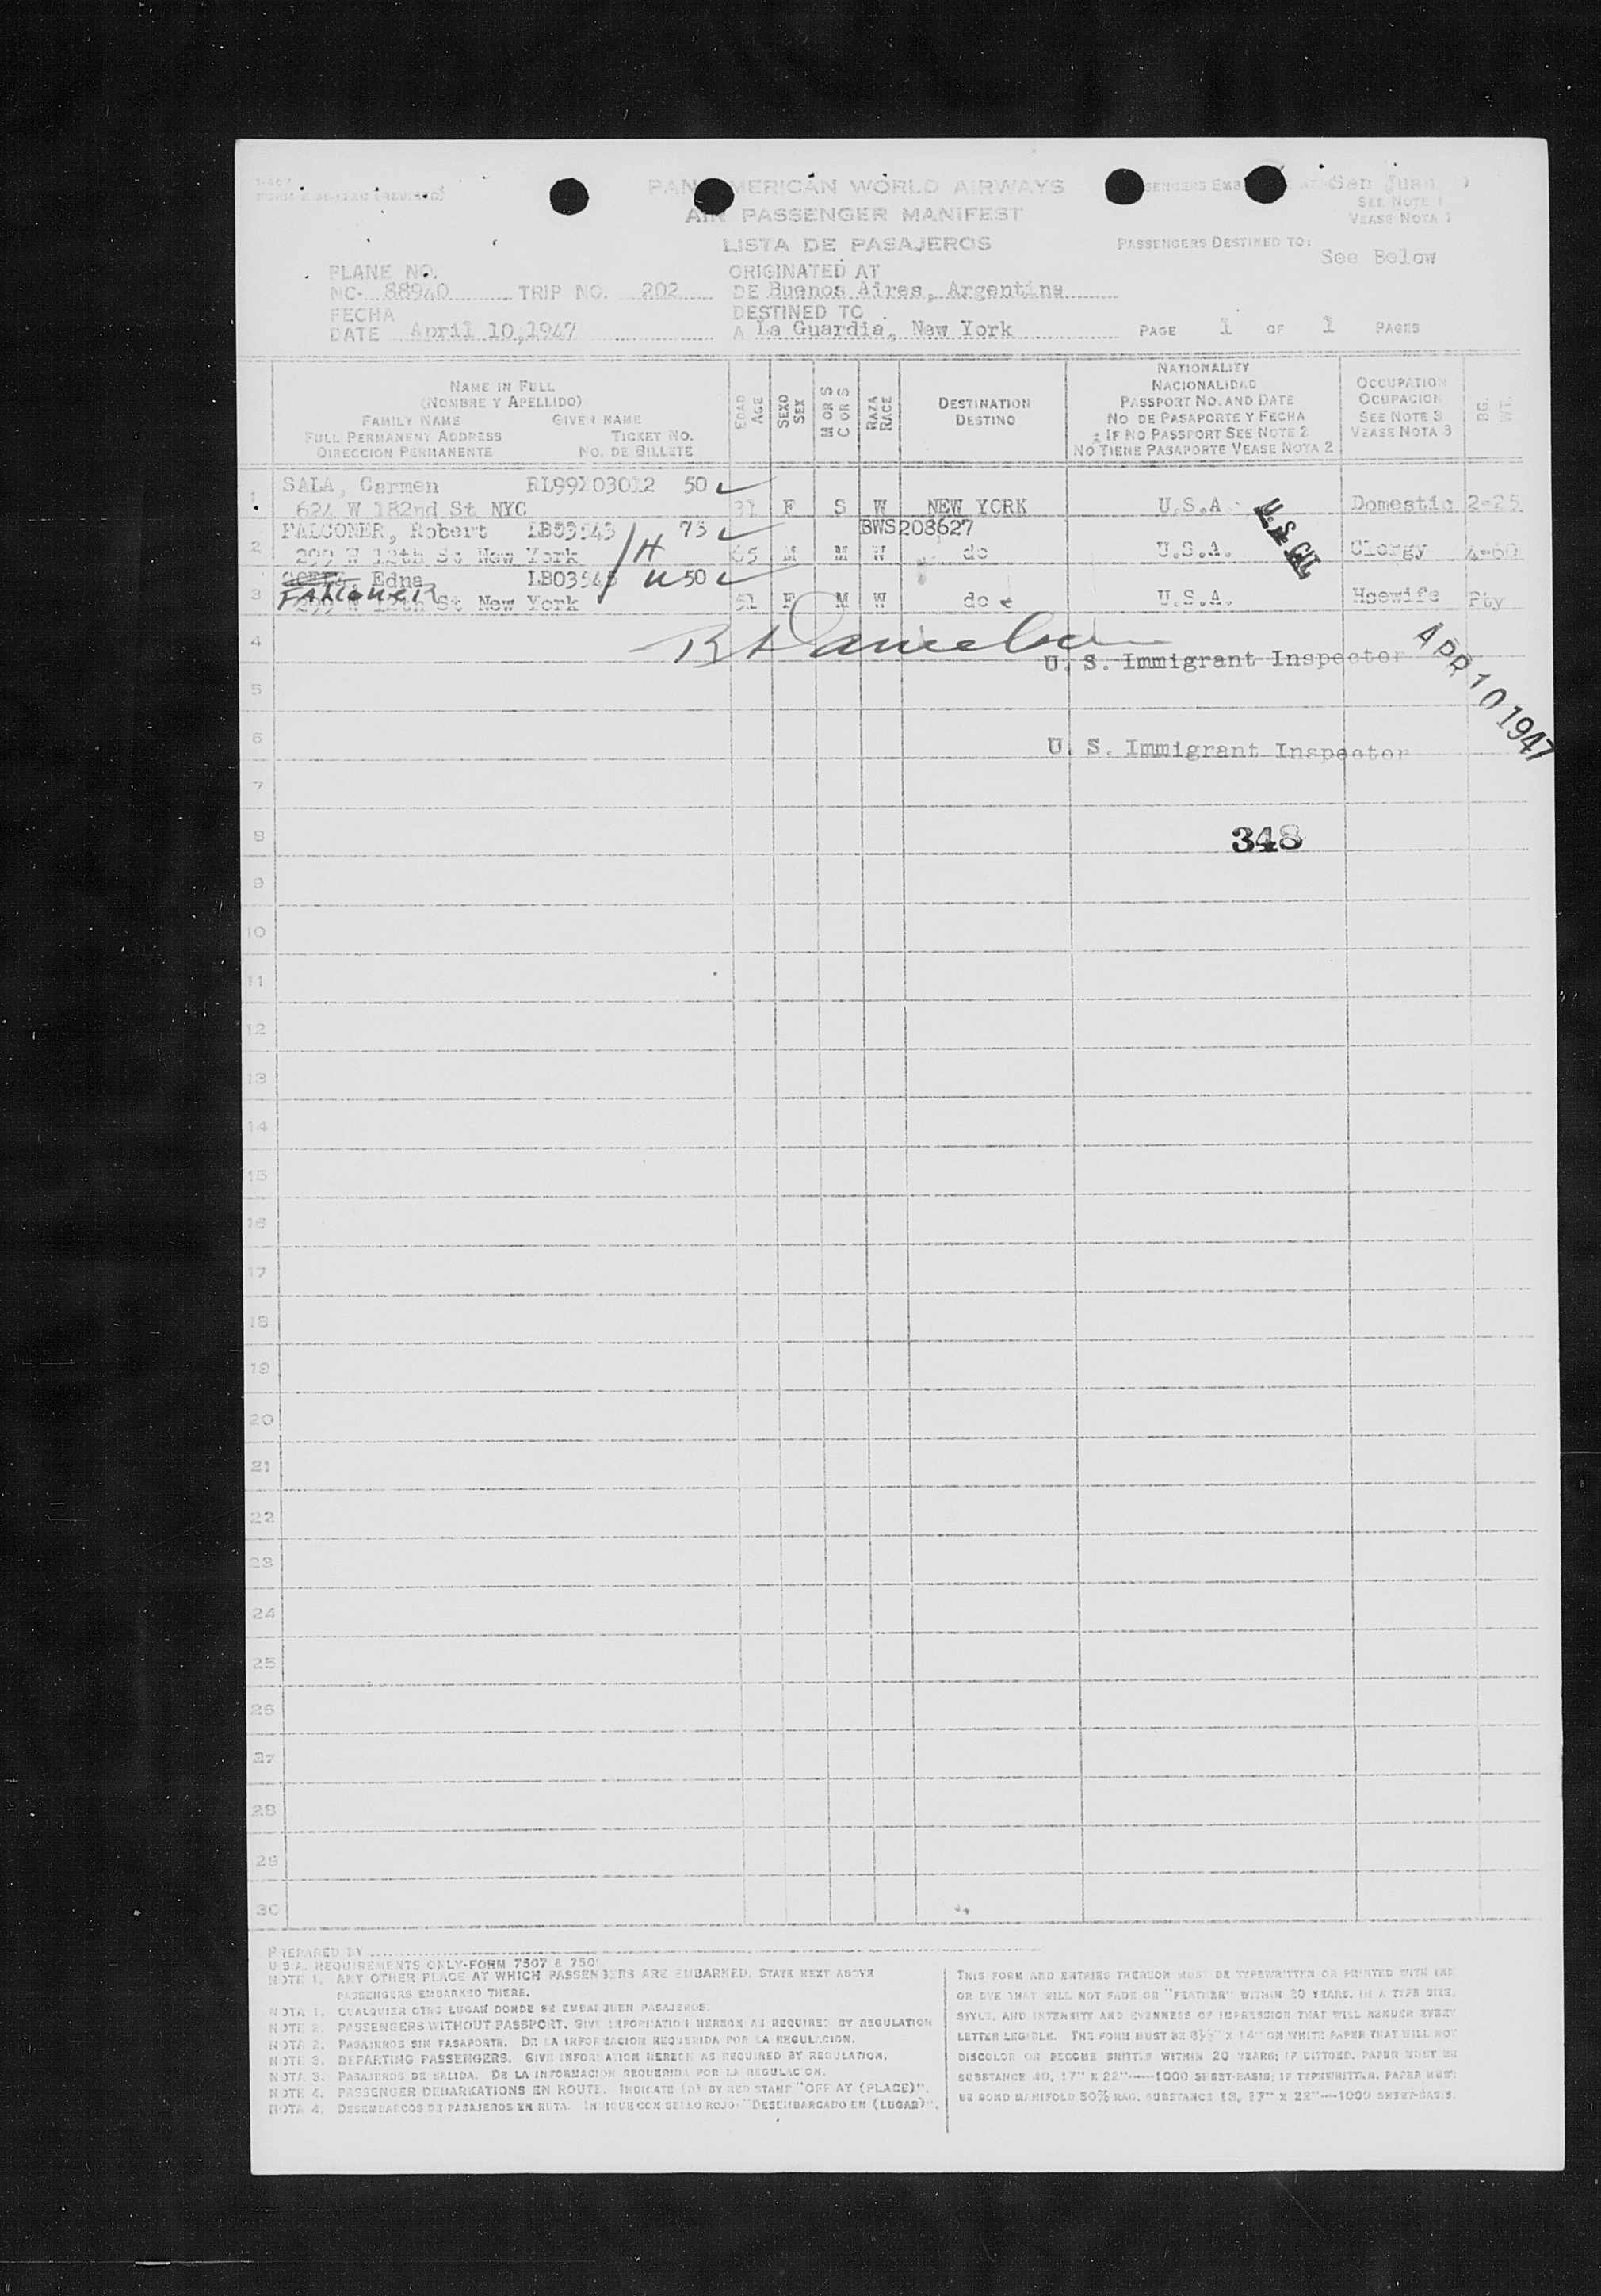 PAN AMERICAN WORLD AIRWAYS
AIR PASSENGER MANIFEST
LISTA DE PASAJEROS
San Juan
SEE NOTE 1
VEASE NOTA 1
PASSENGERS DESTINED TO:
See Below
PLANE NO.
NC- 88940 TRIP NO. 202
FECHA
DATE April 10,1947
ORIGINATED AT
DE Buenos Aires, Argentina
DESTINED TO
A La Guardia, New York
PAGE 1 OF 1 PAGES
NAME IN FULL
(NOMBRE Y APELLIDO)
FAMILY NAME GIVEN NAME
FULL PERMANENT ADDRESS TICKET NO.
DIRECCION PERMANENTE NO. DE BILLETE
EDAD
AGE
SEXO
SEX
M OR S
C OR S
RAZA
RACE
DESTINATION
DESTINO
NATIONALITY
NACIONALIDAD
PASSPORT NO. AND DATE
NO DE PASAPORTE Y FECHA
IF NO PASSPORT SEE NOTE 2
NO TIENE PASAPORTE VEASE NOTA 2
OCCUPATION
OCUPACION
SEE NOTE 3
VEASE NOTA 3
BG.
WT.
SALA, Carmen 50
1 624 W 182nd St NYC F S W NEW YORK U.S.A Domestic 2-25
FALCONER, Robert 75 BWS208627
2 299 W 12th St New York H 65 M M W do U.S.A. Clergy 4-60
Edna 50
FALCONER
3 299 W 12th St New York 51 F M W do U.S.A. Hsewife Pty
4
U. S. Immigrant Inspector
APR 10 1947
5
6
U. S. Immigrant Inspector
7
8
348
9
10
11
12
13
14
15
16
17
18
19
20
21
22
23
24
25
26
27
28
29
30
PREPARED BY
U.S.A. REQUIREMENTS ONLY-FORM 7507 &
NOTE 1. ANY OTHER PLACE AT WHICH PASSENGERS ARE EMBARKED, STATE NEXT ABOVE
PASSENGERS EMBARKED THERE.
NOTA 1. CUALQUIER OTRO LUGAR DONDE SE EMBARQUEN PASAJEROS.
NOTE 2. PASSENGERS WITHOUT PASSPORT. GIVE INFORMATION HEREON AS REQUIRED BY REGULATION
NOTA 2. PASAJEROS SIN PASAPORTE. DE LA INFORMACION REQUERIDA POR LA REGULACION.
NOTE 3. DEPARTING PASSENGERS. GIVE INFORMATION HEREON AS REQUIRED BY REGULATION.
NOTA 3. PASAJEROS DE SALIDA. DE LA INFORMACION REQUERIDA POR LA REGULACION.
NOTE 4. PASSENGER DEBARKATIONS EN ROUTE. INDICATE BY RED STAMP "OFF AT (PLACE)".
NOTA 4. DESEMBARCOS DE PASAJEROS EN RUTA. INDIQUE CON SELLO ROJO "DESEMBARCADO EN (LUGAR)".
THIS FORM AND ENTRIES THEREON MUST BE TYPEWRITTEN OR PRINTED WITH INK
OR DYE THAT WILL NOT FADE OR "FEATHER" WITHIN 20 YEARS, IN A TYPE SIZE,
STYLE, AND INTENSITY AND EVENNESS OF IMPRESSION THAT WILL RENDER EVERY
LETTER LEGIBLE. THE FORM MUST BE 8½" X 14" ON WHITE PAPER THAT WILL NOT
DISCOLOR OR BECOME BRITTLE WITHIN 20 YEARS; IF DITTOED, PAPER MUST BE
SUBSTANCE 40, 17" X 22"—1000 SHEET BASIS; IF TYPEWRITTEN, PAPER MUST
BE BOND MANIFOLD 50% RAG, SUBSTANCE 18, 17" X 22"—1000 SHEET-BASIS.